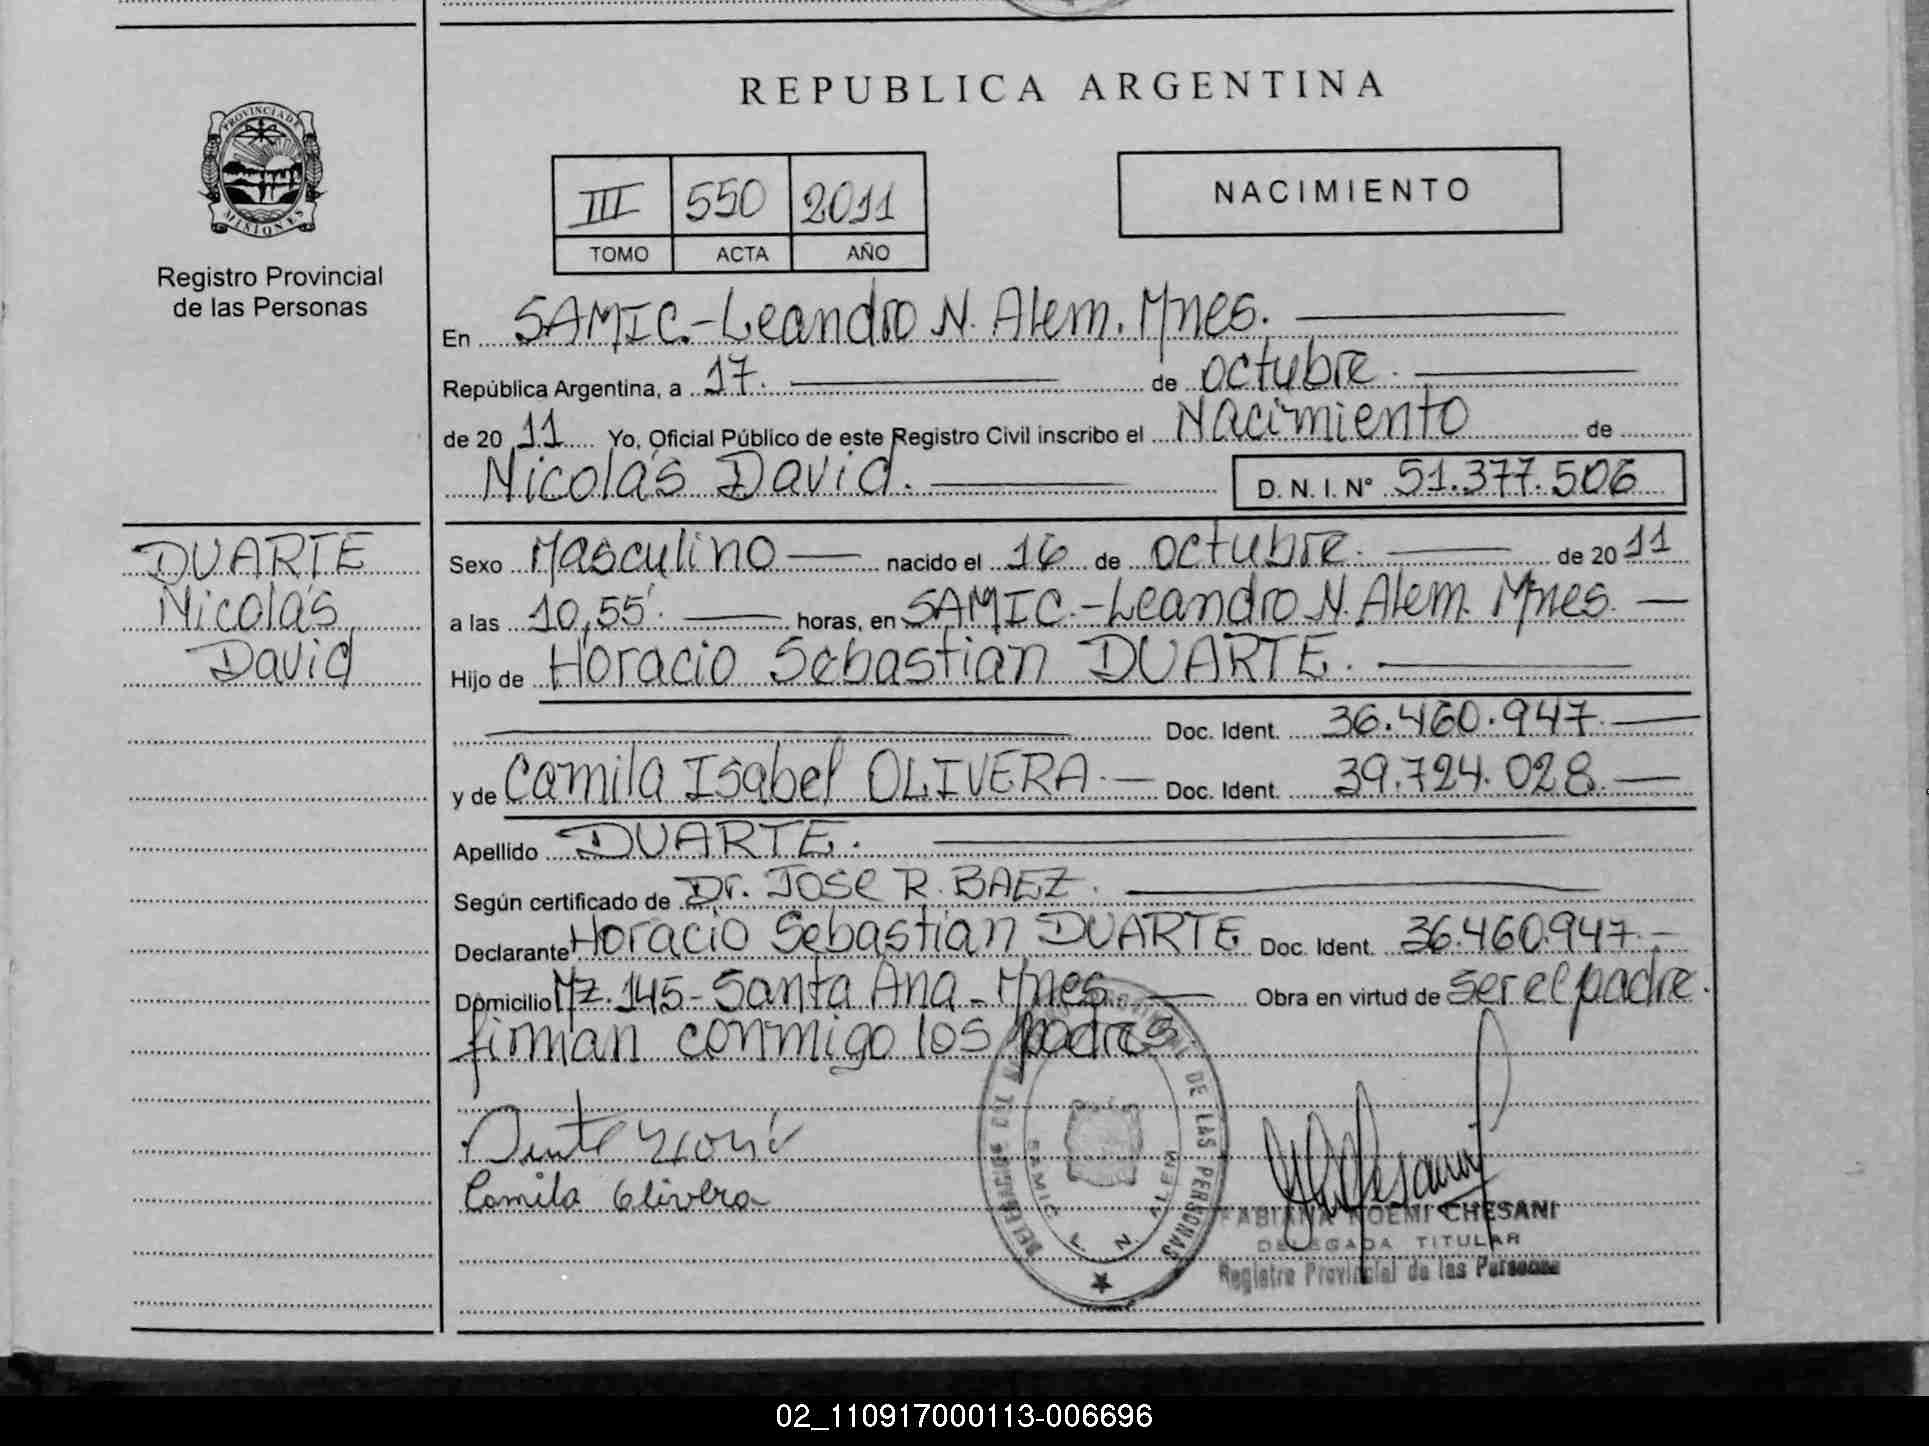 REPUBLICA ARGENTINA
PROVINCIA DE
MISIONES
Registro Provincial
de las Personas
III 550 2011
TOMO ACTA AÑO
NACIMIENTO
En SAMIC.-Leandro N. Alem. Mnes.
República Argentina, a 17. de octubre.
de 20 11 Yo, Oficial Público de este Registro Civil inscribo el Nacimiento de
Nicolás David. D. N. I. N° 51.377.506
DUARTE
Nicolás
David
Sexo Masculino nacido el 16 de octubre. de 20 11
a las 10,55'. horas, en SAMIC.-Leandro N. Alem. Mnes.
Hijo de Horacio Sebastian DUARTE.
Doc. Ident. 36.460.947.
y de Camila Isabel OLIVERA. Doc. Ident. 39.724.028.
Apellido DUARTE.
Según certificado de Dr. JOSE R. BAEZ.
Declarante Horacio Sebastian DUARTE Doc. Ident. 36.460.947.
Domicilio Mz. 145- Santa Ana - Mnes. Obra en virtud de ser el padre.
firman conmigo los padres
Camila Olivera
DE LAS PERSONAS
SAMIC L. N. ALEM
FABIANA NOEMI CHESANI
DELEGADA TITULAR
Registro Provincial de las Personas
02_110917000113-006696